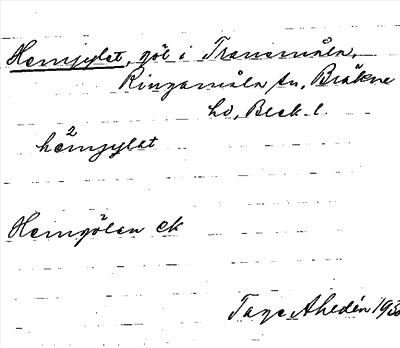 Hemjylet, göl i Tranemåla,
Ringamåla sn, Bräkne
hd, Blek. l.
2
hemjylet
Hemgölen ek
Tage Ahldén 193